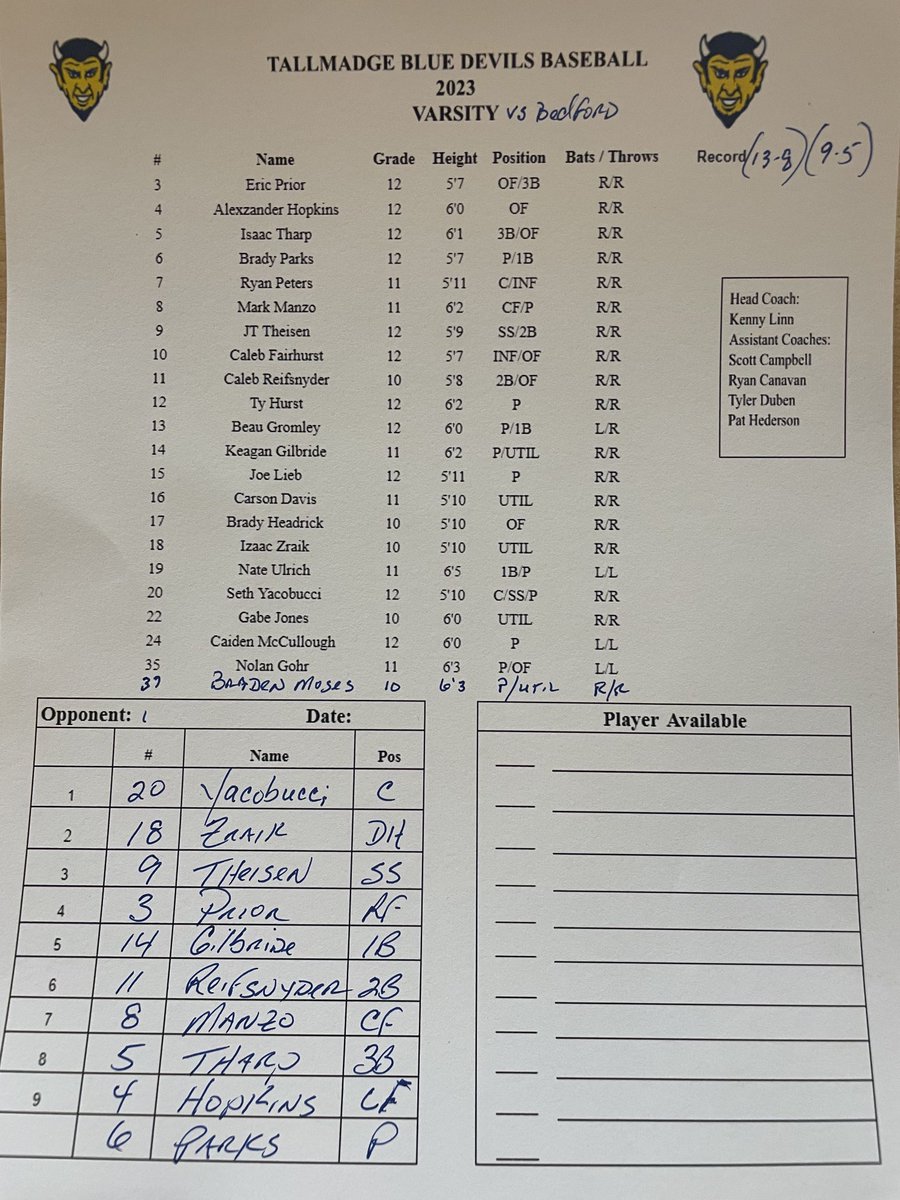 TALLMADGE BLUE DEVILS BASEBALL
2023
VARSITY vs Bedford
Record (13-8) (9-5)
# Name Grade Height Position Bats / Throws
3 Eric Prior 12 5'7 OF/3B R/R
4 Alexzander Hopkins 12 6'0 OF R/R
5 Isaac Tharp 12 6'1 3B/OF R/R
6 Brady Parks 12 5'7 P/1B R/R
7 Ryan Peters 11 5'11 C/INF R/R
8 Mark Manzo 11 6'2 CF/P R/R
9 JT Theisen 12 5'9 SS/2B R/R
10 Caleb Fairhurst 12 5'7 INF/OF R/R
11 Caleb Reifsnyder 10 5'8 2B/OF R/R
12 Ty Hurst 12 6'2 P R/R
13 Beau Gromley 12 6'0 P/1B L/R
14 Keagan Gilbride 11 6'2 P/UTIL R/R
15 Joe Lieb 12 5'11 P R/R
16 Carson Davis 11 5'10 UTIL R/R
17 Brady Headrick 10 5'10 OF R/R
18 Izaac Zraik 10 5'10 UTIL R/R
19 Nate Ulrich 11 6'5 1B/P L/L
20 Seth Yacobucci 12 5'10 C/SS/P R/R
22 Gabe Jones 10 6'0 UTIL R/R
24 Caiden McCullough 12 6'0 P L/L
35 Nolan Gohr 11 6'3 P/OF L/L
37 BRADEN MOSES 10 6'3 P/UTIL R/R
Head Coach:
Kenny Linn
Assistant Coaches:
Scott Campbell
Ryan Canavan
Tyler Duben
Pat Hederson
Opponent: Date:
# Name Pos
1 20 Yacobucci C
2 18 ZRAIK DH
3 9 THEISEN SS
4 3 PRIOR RF
5 14 Gilbride 1B
6 11 REIFSNYDER 2B
7 8 MANZO CF
8 5 THARP 3B
9 4 HOPKINS LF
6 PARKS P
Player Available